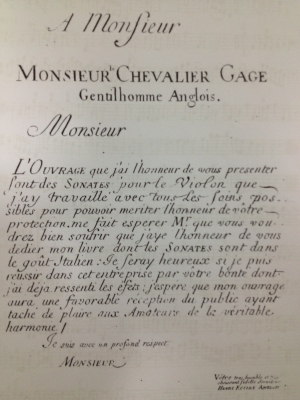 A Monsieur
MONSIEUR le CHEVALIER GAGE
Gentilhomme Anglois.
Monsieur
L'OUVRAGE que j'ai l'honneur de vous presenter
sont des SONATES pour le Violon que
j'ay travaillé avec tous les soins pos-
sibles pour pouvoir meriter l'honneur de votre
protection, me fait esperer Mr. que vous vou-
drez bien soufrir que j'aye l'honneur de vous
dedier mon livre dont les SONATES sont dans
le goût Italien: Je seray heureux si je puis
reüssir dans cet entreprise par vôtre bonté dont
j'ai deja ressenti les efets; j'espere que mon ouvrage
aura une favorable reception du public ayant
taché de plaire aux Amateurs de la veritable
harmonie!
Je suis avec un profond respect
MONSIEUR
Vôtre tres humble et tres
obeissant fidelle Serviteur
HENRY